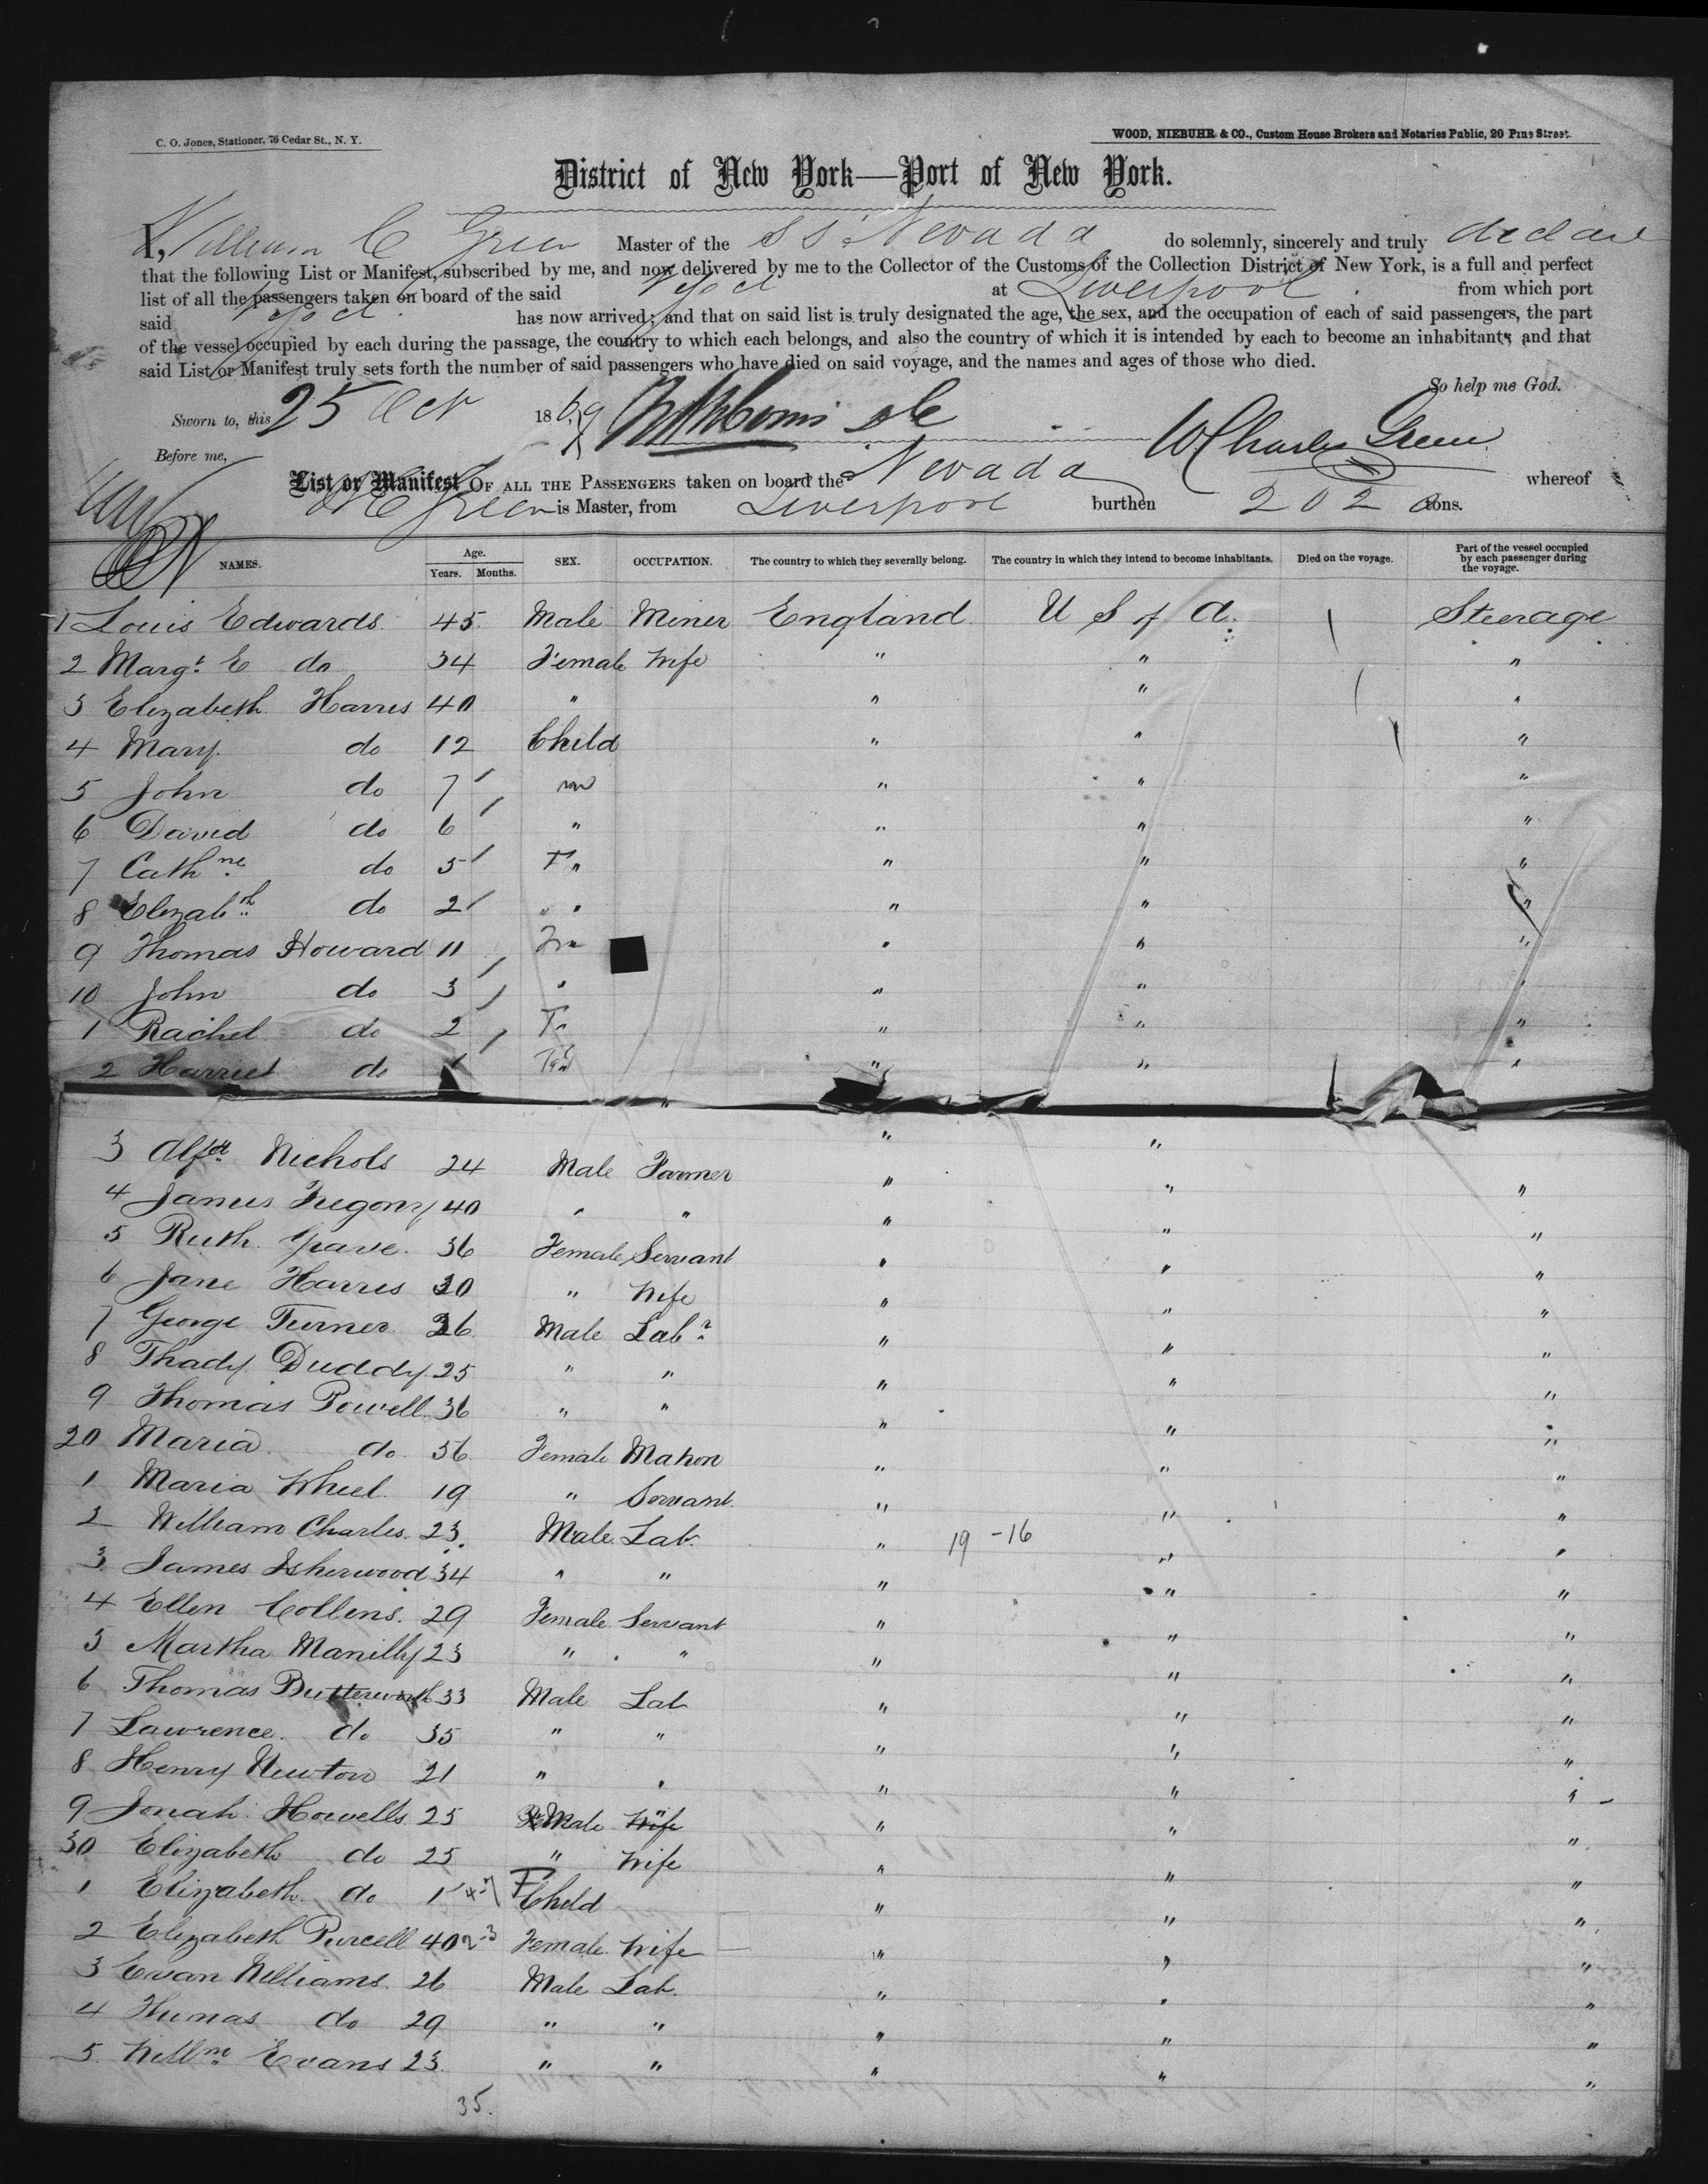 C. O. Jones, Stationer, 76 Cedar St., N. Y.
WOOD, NIEBUHR & CO., Custom House Brokers and Notaries Public, 20 Pine Street.
District of New York—Port of New York.
I, William C Green Master of the S S Nevada do solemnly, sincerely and truly declare
that the following List or Manifest, subscribed by me, and now delivered by me to the Collector of the Customs of the Collection District of New York, is a full and perfect
list of all the passengers taken on board of the said at Liverpool from which port
said has now arrived; and that on said list is truly designated the age, the sex, and the occupation of each of said passengers, the part
of the vessel occupied by each during the passage, the country to which each belongs, and also the country of which it is intended by each to become an inhabitant; and that
said List or Manifest truly sets forth the number of said passengers who have died on said voyage, and the names and ages of those who died.
So help me God.
Sworn to, this 25 Oct 1869 W Charles Green
Before me,
List or Manifest OF ALL THE PASSENGERS taken on board the Nevada whereof
W C Green is Master, from Liverpool burthen 202 tons.
NAMES. Age. Years. Months. SEX. OCCUPATION. The country to which they severally belong. The country in which they intend to become inhabitants. Died on the voyage. Part of the vessel occupied by each passenger during the voyage.
1 Louis Edwards 45 Male Miner England U S of A. Steerage
2 Margt E do 34 Female Wife " " "
3 Elizabeth Harris 40 " " " "
4 Mary do 12 Child " " "
5 John do 7 m " " "
6 David do 6 " " " "
7 Cathne do 5 F " " " "
8 Elizabth do 2 " " " " "
9 Thomas Howard 11 m " " "
10 John do 3 " " " "
1 Rachel do 2 F " " "
2 Harriet do " " "
3 Alfd Nichols 24 Male Farmer " "
4 James Fregony 40 " " " " "
5 Ruth Grave 36 Female Servant " " "
6 Jane Harris 30 " Wife " " "
7 George Turner 26 Male Labr " " "
8 Thady Duddy 25 " " " " "
9 Thomas Powell 36 " " " " "
20 Maria do 56 Female Matron " " "
1 Maria Wheel 19 " Servant " " "
2 William Charles 23 Male Lab. " 19-16 " "
3 James Isherwood 34 " " " " "
4 Ellen Collins 29 Female Servant " " "
5 Martha Manilly 23 " " " " "
6 Thomas Butterworth 33 Male Lab " " "
7 Lawrence do 35 " " " " "
8 Henry Newton 21 " " " " "
9 Jonah Howells 25 Male Wife " " " "
30 Elizabeth do 25 " Wife " " "
1 Elizabeth do 1 F Child " " "
2 Elizabeth Purcell 40 Female Wife " " "
3 Evan Williams 26 Male Lab. " " "
4 Thomas do 29 " " " " "
5 Willm Evans 23 " " " " "
35.